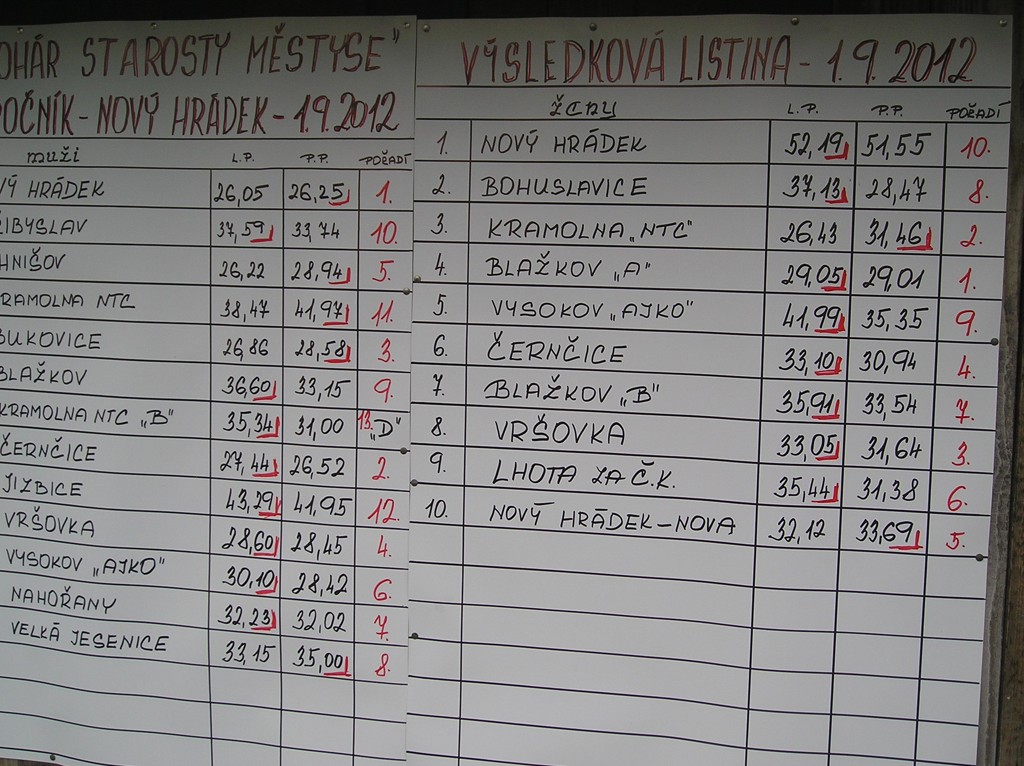 OHÁR STAROSTY MĚSTYSE"
OČNÍK - NOVÝ HRÁDEK - 1.9.2012
muži L.P. P.P. POŘADÍ
VÝ HRÁDEK 26,05 26,25 1.
IBYSLAV 37,59 33,74 10.
HNIŠOV 26,22 28,94 5.
RAMOLNA NTC 38,47 41,97 11.
BUKOVICE 26,86 28,58 3.
BLAŽKOV 36,60 33,15 9.
KRAMOLNA NTC „B" 35,34 31,00 13. „D"
ČERNČICE 27,44 26,52 2.
JIZBICE 43,29 41,95 12.
VRŠOVKA 28,60 28,45 4.
VYSOKOV „AJKO" 30,10 28,42 6.
NAHOŘANY 32,23 32,02 7.
VELKÁ JESENICE 33,15 35,00 8.
VÝSLEDKOVÁ LISTINA - 1.9.2012
ŽENY L.P. P.P. POŘADÍ
1. NOVÝ HRÁDEK 52,19 51,55 10.
2. BOHUSLAVICE 37,13 28,47 8.
3. KRAMOLNA „NTC" 26,43 31,46 2.
4. BLAŽKOV „A" 29,05 29,01 1.
5. VYSOKOV „AJKO" 41,99 35,35 9.
6. ČERNČICE 33,10 30,94 4.
7. BLAŽKOV „B" 35,91 33,54 7.
8. VRŠOVKA 33,05 31,64 3.
9. LHOTA ZA Č.K. 35,44 31,38 6.
10. NOVÝ HRÁDEK - NOVA 32,12 33,69 5.